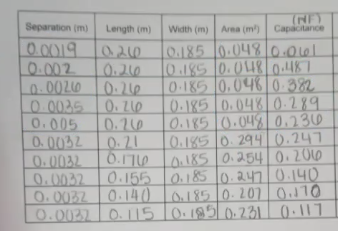 Separation (m) Length (m) Width (m) Area (m²) (NF) Capacitance
0.0019 0.26 0.185 0.048 0.061
0.002 0.26 0.185 0.048 0.487
0.0026 0.26 0.185 0.048 0.382
0.0035 0.26 0.185 0.048 0.289
0.005 0.26 0.185 0.048 0.236
0.0032 0.21 0.185 0.294 0.247
0.0032 0.176 0.185 0.254 0.206
0.0032 0.155 0.185 0.247 0.140
0.0032 0.140 0.185 0.207 0.170
0.0032 0.115 0.185 0.231 0.117